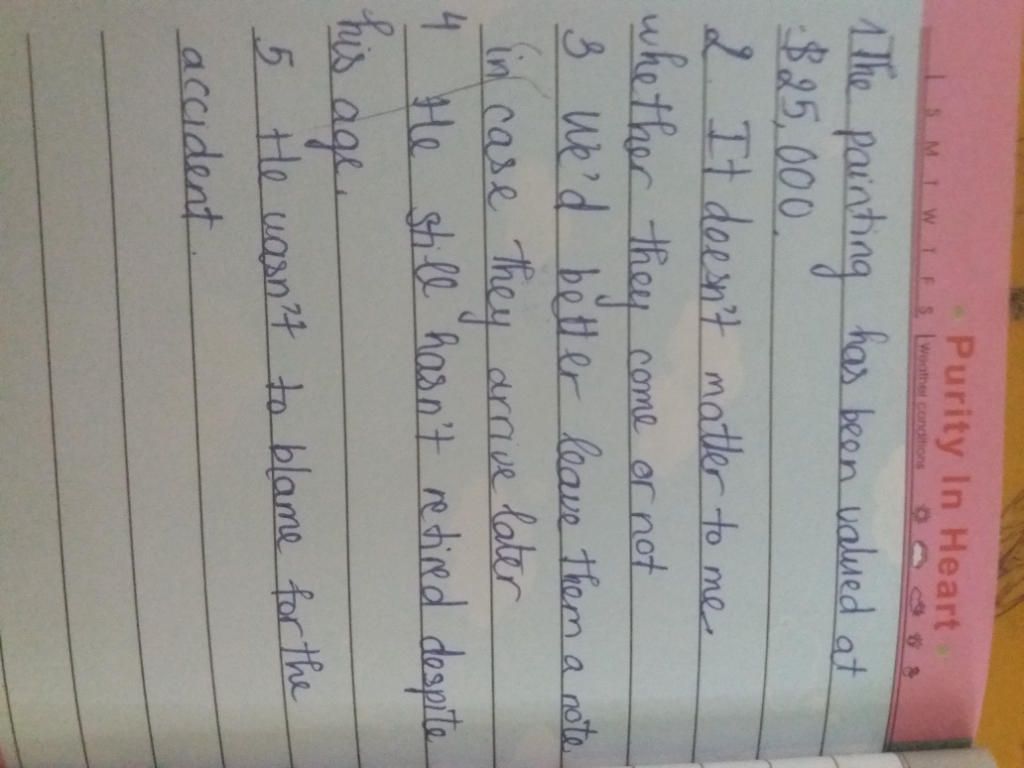 Purity In Heart
S M T W T F S Weather conditions
1 The painting has been valued at
$25,000.
2 It doesn't matter to me
whether they come or not
3 We'd better leave them a note
in case they arrive later
4 He still hasn't retired despite
his age.
5 He wasn't to blame for the
accident.